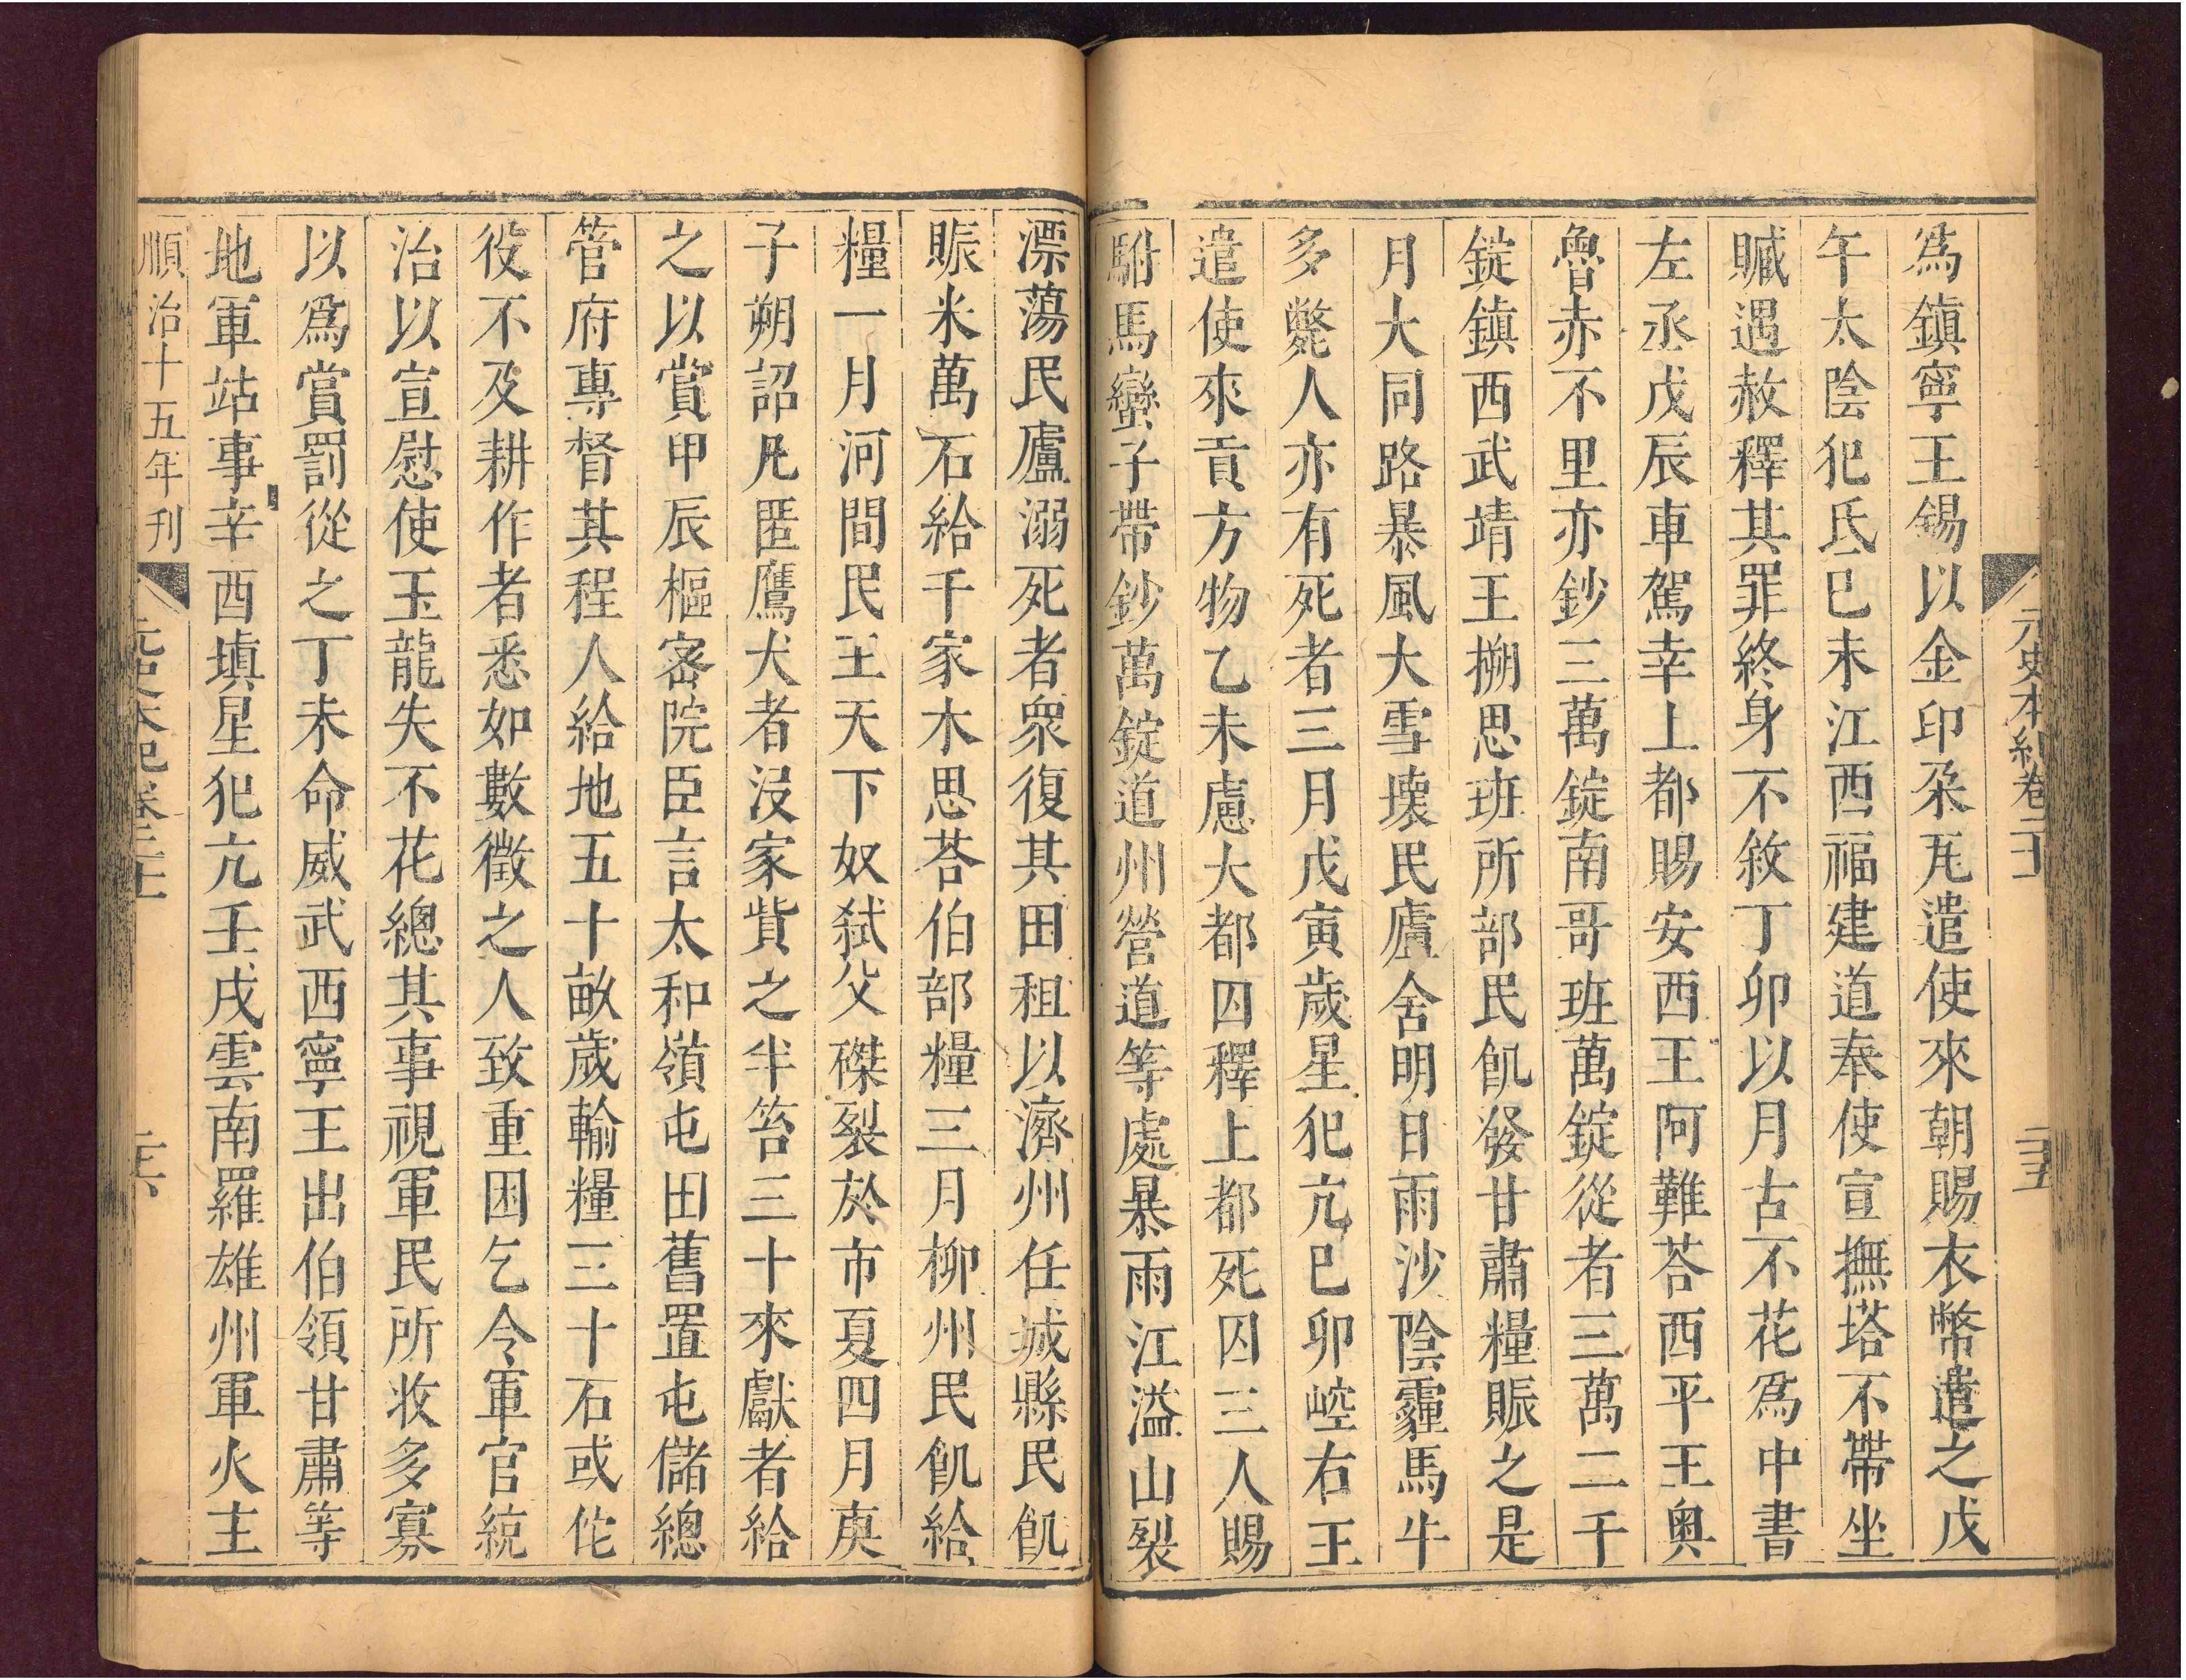 元史本紀卷二十
二十五
爲鎮寧王錫以金印朶瓦遣使來朝賜衣幣遣之戊
午太陰犯氐己未江西福建道奉使宣撫塔不帶坐
贓遇赦釋其罪終身不敘丁卯以月古不花爲中書
左丞戊辰車駕幸上都賜安西王阿難荅西平王奥
魯赤不里亦鈔三萬錠南哥班萬錠從者三萬二千
錠鎮西武靖王搠思班所部民飢發甘肅糧賑之是
月大同路暴風大雪壞民廬舍明日雨沙陰霾馬牛
多斃人亦有死者三月戊寅歲星犯亢己卯崆右王
遣使來貢方物乙未慮大都囚釋上都死囚三人賜
駙馬蠻子帶鈔萬錠道州營道等處暴雨江溢山裂
漂蕩民廬溺死者衆復其田租以濟州任城縣民飢
賑米萬石給千家木思荅伯部糧三月柳州民飢給
糧一月河間民王天下奴弑父磔裂於市夏四月庚
子朔詔凡匿鷹犬者没家貲之半笞三十來獻者給
之以賞甲辰樞密院臣言太和嶺屯田舊置屯儲總
管府專督其程人給地五十畝歲輸糧三十石或佗
役不及耕作者悉如數徵之人致重困乞令軍官統
治以宣慰使玉龍失不花總其事視軍民所收多寡
以爲賞罰從之丁未命威武西寧王出伯領甘肅等
地軍站事辛酉塡星犯亢壬戌雲南羅雄州軍火主
順治十五年刊
元史本紀卷二十
二十六